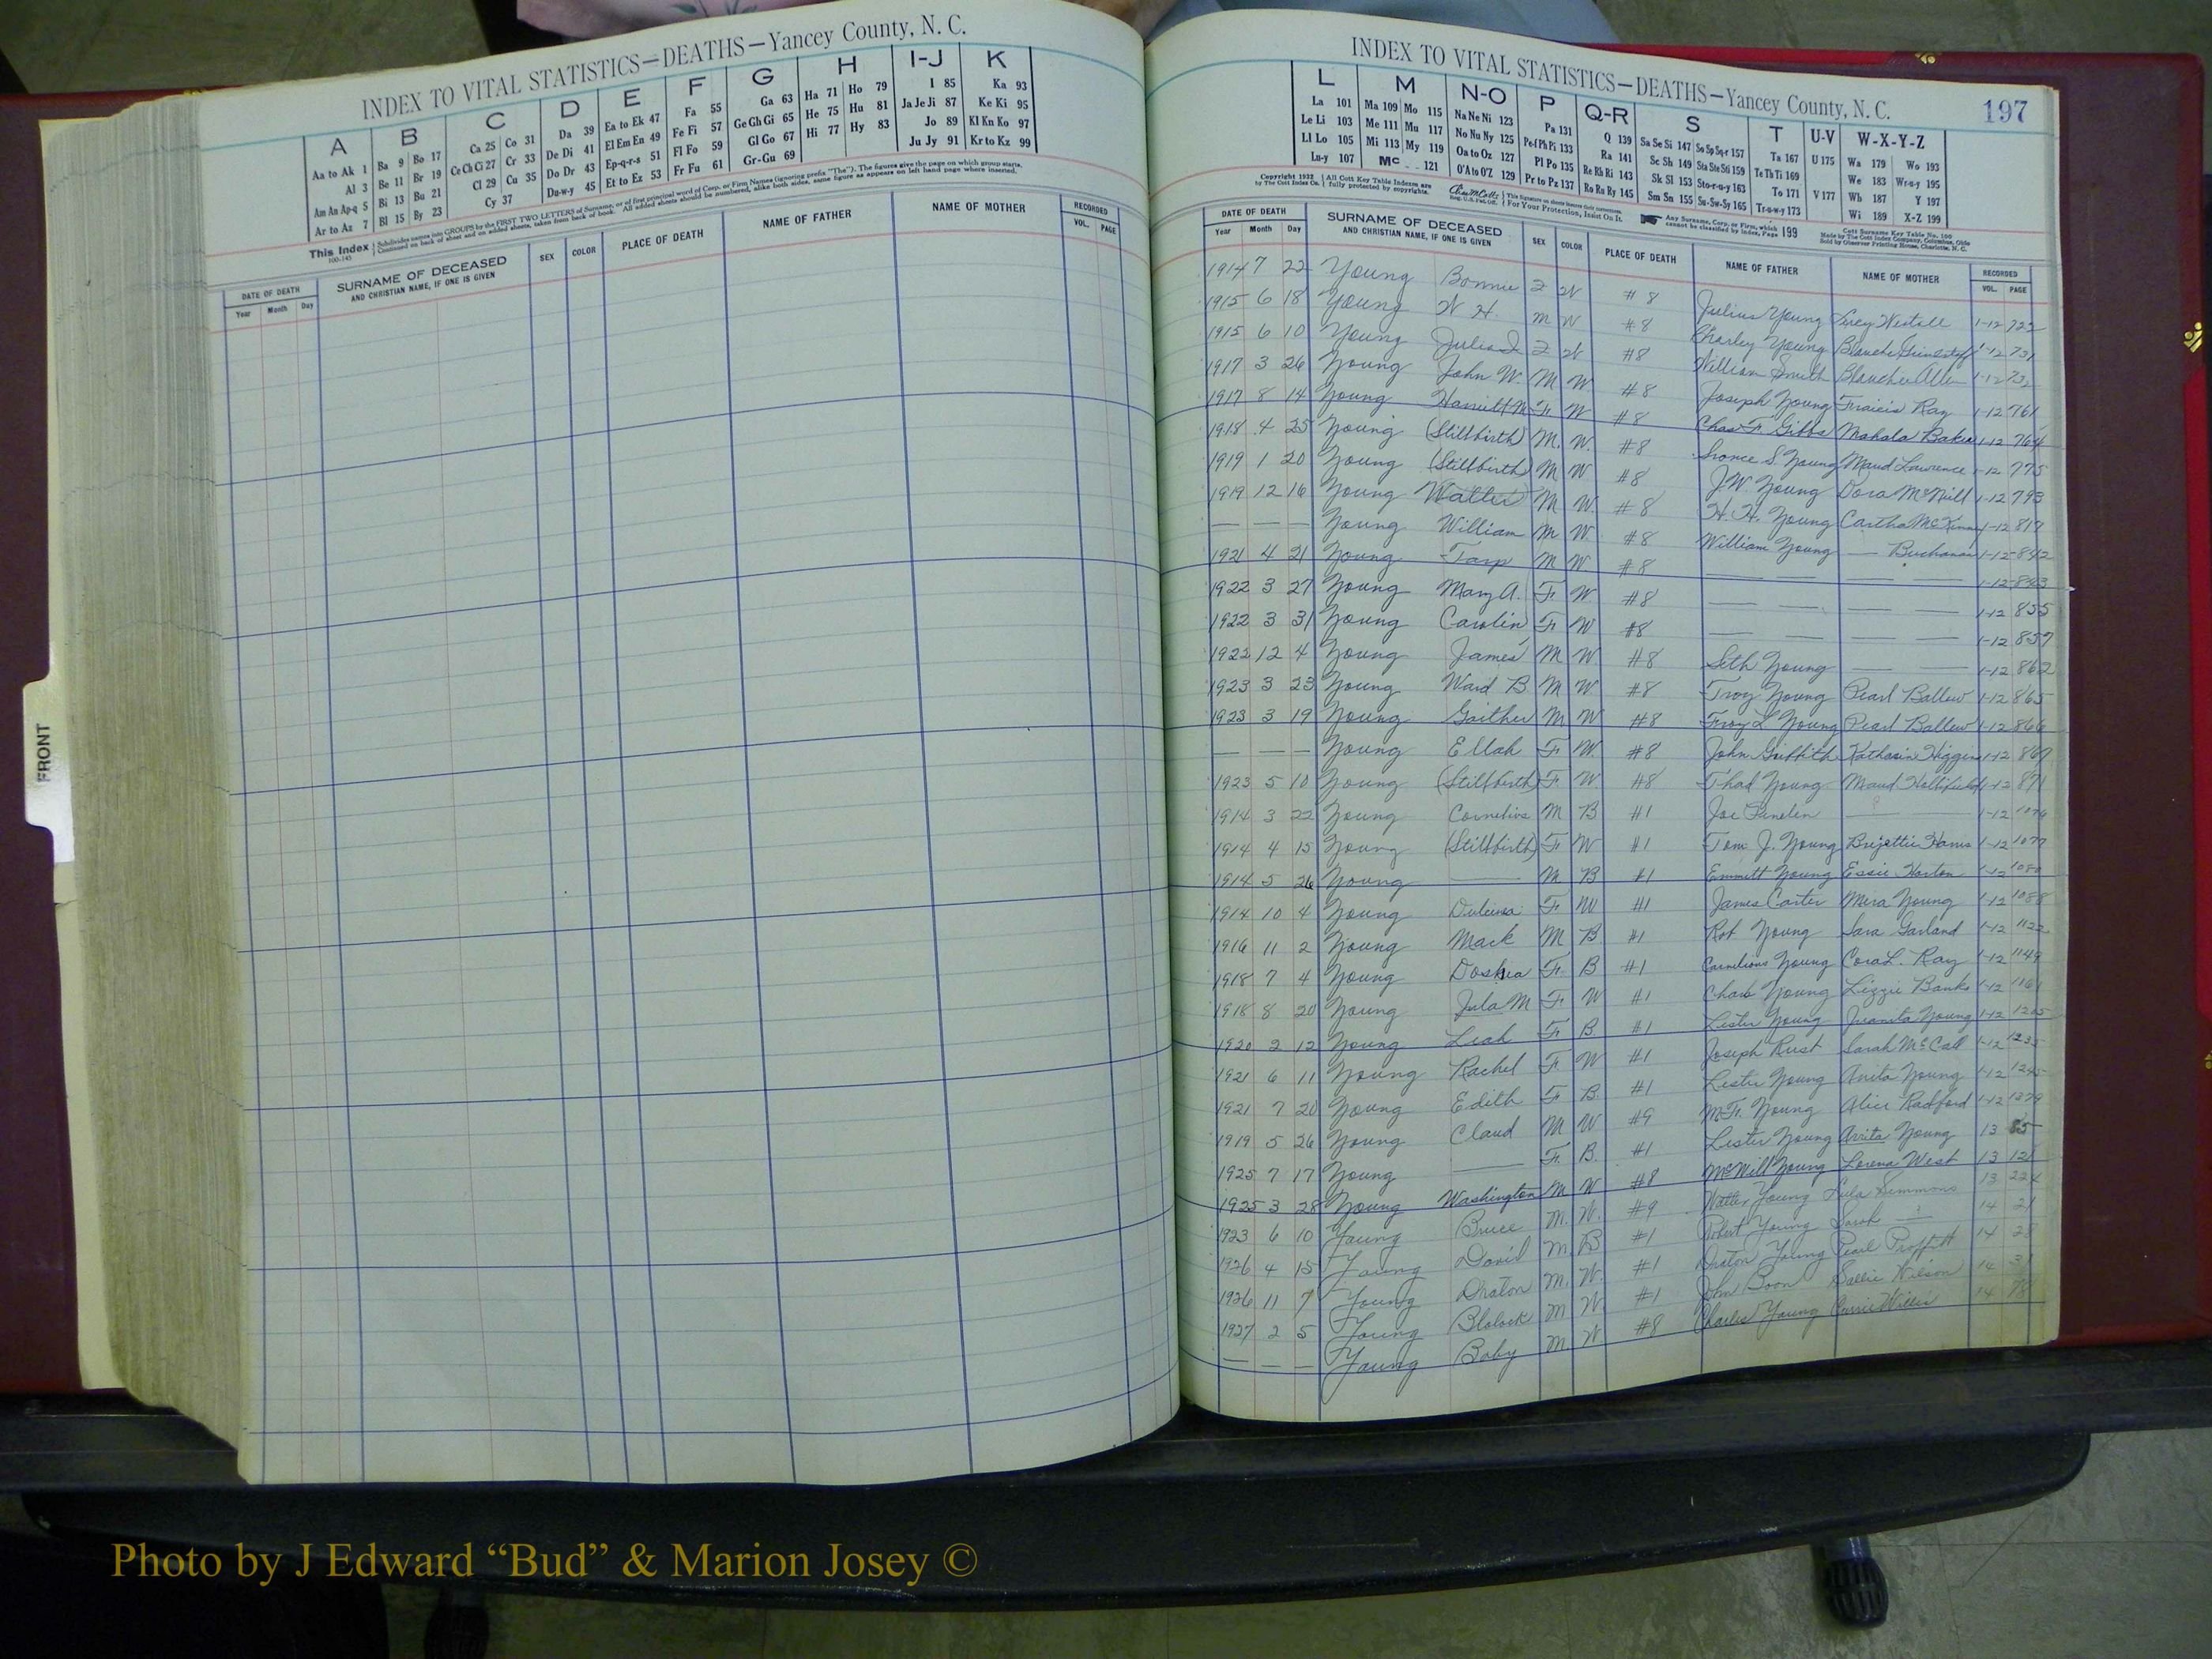 INDEX TO VITAL STATISTICS—DEATHS—Yancey County, N. C.
A B C D E F G H I-J K
Aa to Ak 1 Ba 9 Bo 17 Ca 25 Co 31 Da 39 Ea to Ek 47 Fa 55 Ga 63 Ha 71 Ho 79 I 85 Ka 93
Al 3 Be 11 Br 19 Ce Ch Ci 27 Cr 33 De Di 41 El Em En 49 Fe Fi 57 Ge Gh Gi 65 He 75 Hu 81 Ja Je Ji 87 Ke Ki 95
Am An Ap-q 5 Bi 13 Bu 21 Cl 29 Cu 35 Do Dr 43 Ep-q-r-s 51 Fl Fo 59 Gl Go 67 Hi 77 Hy 83 Jo 89 Kl Kn Ko 97
Ar to Az 7 Bl 15 By 23 Cy 37 Du-w-y 45 Et to Ez 53 Fr Fu 61 Gr-Gu 69 Ju Jy 91 Kr to Kz 99
This Index Subdivides names into GROUPS by the FIRST TWO LETTERS of Surname, or of first principal word of Corp. or Firm Names (ignoring prefix "The"). The figures give the page on which group starts.
Continued on back of sheet and on added sheets, taken from back of book. All added sheets should be numbered, alike both sides, same figure as appears on left hand page where inserted.
DATE OF DEATH SURNAME OF DECEASED SEX COLOR PLACE OF DEATH NAME OF FATHER NAME OF MOTHER RECORDED
Year Month Day AND CHRISTIAN NAME, IF ONE IS GIVEN VOL. PAGE
FRONT
INDEX TO VITAL STATISTICS—DEATHS—Yancey County, N. C. 197
L M N-O P Q-R S T U-V W-X-Y-Z
La 101 Ma 109 Mo 115 Na Ne Ni 123 Pa 131 Q 139 Sa Se Si 147 So Sp Sq-r 157 Ta 167 U 175 Wa 179 Wo 193
Le Li 103 Me 111 Mu 117 No Nu Ny 125 Pe-f Ph Pi 133 Ra 141 Sc Sh 149 Sta Ste Sti 159 Te Th Ti 169 We 183 Wr-u-y 195
Ll Lo 105 Mi 113 My 119 Oa to Oz 127 Pl Po 135 Re Rh Ri 143 Sk Sl 153 Sto-r-u-y 163 To 171 V 177 Wh 187 Y 197
Lu-y 107 Mc 121 O'A to O'Z 129 Pr to Pz 137 Ro Ru Ry 145 Sm Sn 155 Su-Sw-Sy 165 Tr-u-w-y 173 Wi 189 X-Z 199
Copyright 1932 by The Cott Index Co. All Cott Key Table Indexes are fully protected by copyrights. For Your Protection, Insist On It. Any Surname, Corp. or Firm, which cannot be classified by Index, Page 199
Cott Surname Key Table No. 100
Made by The Cott Index Company, Columbus, Ohio
Sold by Observer Printing House, Charlotte, N. C.
DATE OF DEATH SURNAME OF DECEASED SEX COLOR PLACE OF DEATH NAME OF FATHER NAME OF MOTHER RECORDED
Year Month Day AND CHRISTIAN NAME, IF ONE IS GIVEN VOL. PAGE
1914 7 22 Young Bonnie F W #8 Julius Young Lucy Westall 1-12 722
1915 6 18 Young W H. M W #8 Charley Young Blanche 1-12 731
1915 6 10 Young Julia F W #8 William Smith Blanche Allen 1-12 732
1917 3 26 Young John W. M W. #8 Joseph Young Ray 1-12 761
1917 8 14 Young Harriett M F W #8 Chas F. Gibbs Mahala Baker 1-12 764
1918 4 25 Young (Stillbirth) M. W. #8 S. Young Maud Lawrence 1-12 775
1919 1 20 Young (Stillbirth) M W #8 J. W. Young Dora McNeill 1-12 793
1919 12 16 Young Walter M W. #8 H. H. Young Cartha McKinney 1-12 817
— — — Young William M W. #8 William Young — Buchanan 1-12 842
1921 4 21 Young Tarp M W. #8 — — — — 1-12 843
1922 3 27 Young Mary A. F W #8 — — — — 1-12 855
1922 3 31 Young Carolin F W #8 — — — — 1-12 857
1922 12 4 Young James M W #8 Seth Young — — 1-12 862
1923 3 23 Young Ward B. M W #8 Troy Young Pearl Ballew 1-12 865
1923 3 19 Young Gaither M W #8 Troy L. Young Pearl Ballew 1-12 866
— — — Young Ellah F W. #8 John Griffith Katharin Higgins 1-12 869
1923 5 10 Young (Stillbirth) F W. #8 Thad Young Maud Hollifield 1-12 871
1914 3 22 Young Cornelius M B #1 Joe — 1-12 1076
1914 4 15 Young (Stillbirth) F W #1 Tom J. Young Brijettie Harris 1-12 1077
1914 5 26 Young — M B #1 Emmitt Young Essie Horton 1-12 1080
1914 10 4 Young Dulcena F W #1 James Carter Mira Young 1-12 1088
1916 11 2 Young Mack M B. #1 Rob Young Sara Garland 1-12 1122
1918 7 4 Young Doshia F. B #1 Cornelious Young Cora L. Ray 1-12 1149
1918 8 20 Young Jula M F. W #1 Chas Young Lizzie Banks 1-12 1161
1920 2 12 Young Leah F B. #1 Lester Young Juanita Young 1-12 1205
1921 6 11 Young Rachel F W #1 Joseph Rust Sarah McCall 1-12 1235
1921 7 20 Young Edith F B. #1 Lester Young Anita Young 1-12 1245
1919 5 26 Young Claud M W #9 M. F. Young Alice Radford 1-12 1379
1925 7 17 Young — F. B. #1 Lester Young Anita Young 13 85
1925 3 28 Young Washington M W #8 McWill Young Lorena West 13 121
1923 6 10 Young Bruce M. W. #9 Walter Young Lula Simmons 13 224
1926 4 15 Young David M. B #1 Robert Young Sarah — 14 21
1926 11 7 Young Draton M. W. #1 Draton Young Pearl Proffitt 14 28
1927 2 5 Young Blalock M W #1 John Boon Sallie Wilson 14 31
— — — Young Baby M. W #8 Charlie Young Carrie Willis 14 78
Photo by J Edward “Bud” & Marion Josey ©